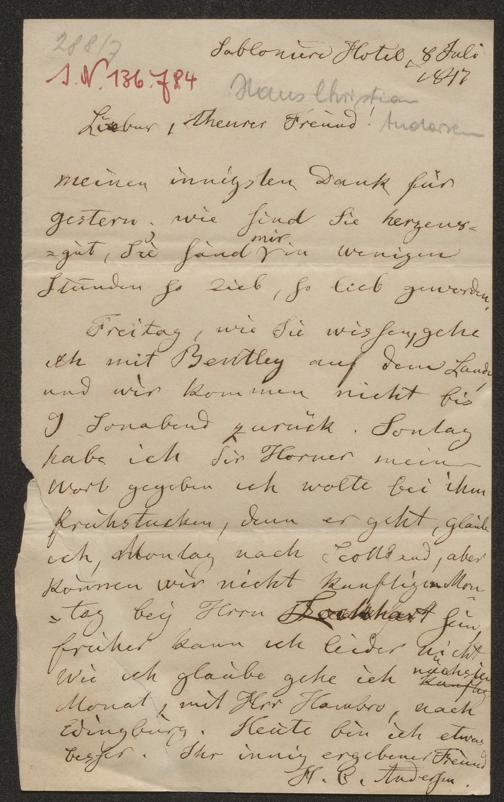 288/7
Sablonière Hotel, 8 Juli
1847
J.N. 136.784
Hans Christian
Andersen
Lieber, theurer Freund!
meinen innigsten Dank für
gestern. wie sind Sie herzens-
=gut, Sie sänd mir in wenigen
Stunden so lieb, so lieb geworden.
Freitag, wie Sie wissen, gehe
ich mit Bentley auf dem Lande
und wir kommen nicht bis
9 Sonabend zurück. Sontag
habe ich Sir Horner mein
Wort gegeben ich wolte bei ihm
frühstucken, denn er geht, glaube
ich, Montag nach Scottland, aber
können wir nicht kunftigen Mon
=tag bey Herrn Lockhart sein,
früher kann ich leider nicht
Wie ich glaube gehe ich nächsten
Monat, mit Hrr Hambro, nach
Edingburg. Heute bin ich etwas
besser. Ihr innig ergebener Freund
H. C. Andersen.